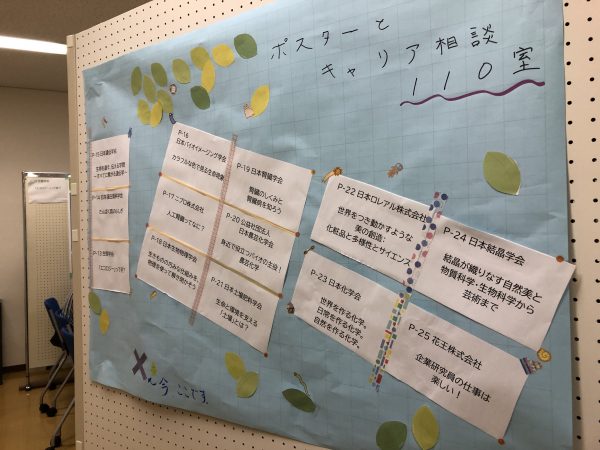 ポスターと
キャリア相談
110室
P-16
日本バイオイメージング学会
カラフルな色で見る生命現象
P-17 ニプロ株式会社
人工腎臓ってなに？
P-18 日本生物物理学会
生きものの巧みな仕組みを、
物理を使って解き明かそう
P-19 日本腎臓学会
腎臓のしくみと
腎臓病を知ろう
P-20 公益社団法人
日本農芸化学会
身近で役立つバイオの主役！
農芸化学
P-21 日本土壌肥料学会
生命と環境を支える
「土壌」とは？
P-22 日本ロレアル株式会社
世界をつき動かすような
美の創造：
化粧品と多様性とサイエンス
P-23 日本化学会
世界を作る化学。
日常を作る化学。
自然を作る化学。
P-24 日本結晶学会
結晶が織りなす自然美と
物質科学・生物科学から
芸術まで
P-25 花王株式会社
企業研究員の仕事は
楽しい！
今、ここです。